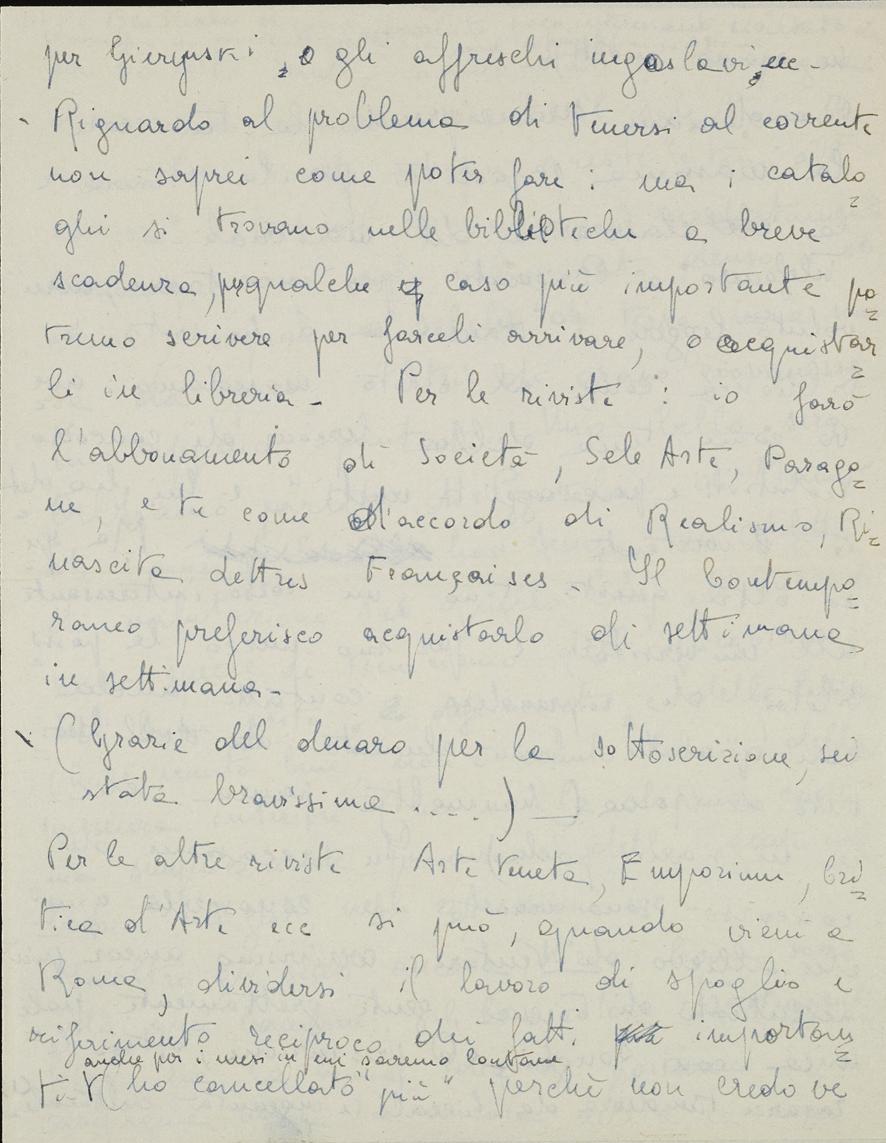 per Gierymski, o gli affreschi iugoslavi, ecc -
- Riguardo al problema di tenersi al corrente
non saprei come poter fare: ma i catalo
ghi si trovano nelle biblioteche a breve
scadenza, per qualche caso più importante po
tremo scrivere per farceli arrivare, o acquistar
li in libreria - Per le riviste: io farò
l'abbonamento di Società, Sele Arte, Parago
ne, e te come d'accordo di Realismo, Ri
nascita Lettres Françaises - Il Contempo
raneo preferisco acquistarlo di settimana
in settimana -
(Grazie del denaro per la sottoscrizione, sei
stata bravissima ....) —
Per le altre riviste Arte Veneta, Emporium, Cri
tica d'Arte ecc si può, quando vieni a
Roma, dividersi il lavoro di spoglio e
riferimento reciproco dei fatti importan
anche per i mesi in cui saremo lontane
ti (ho cancellato "più" perchè non credo ve